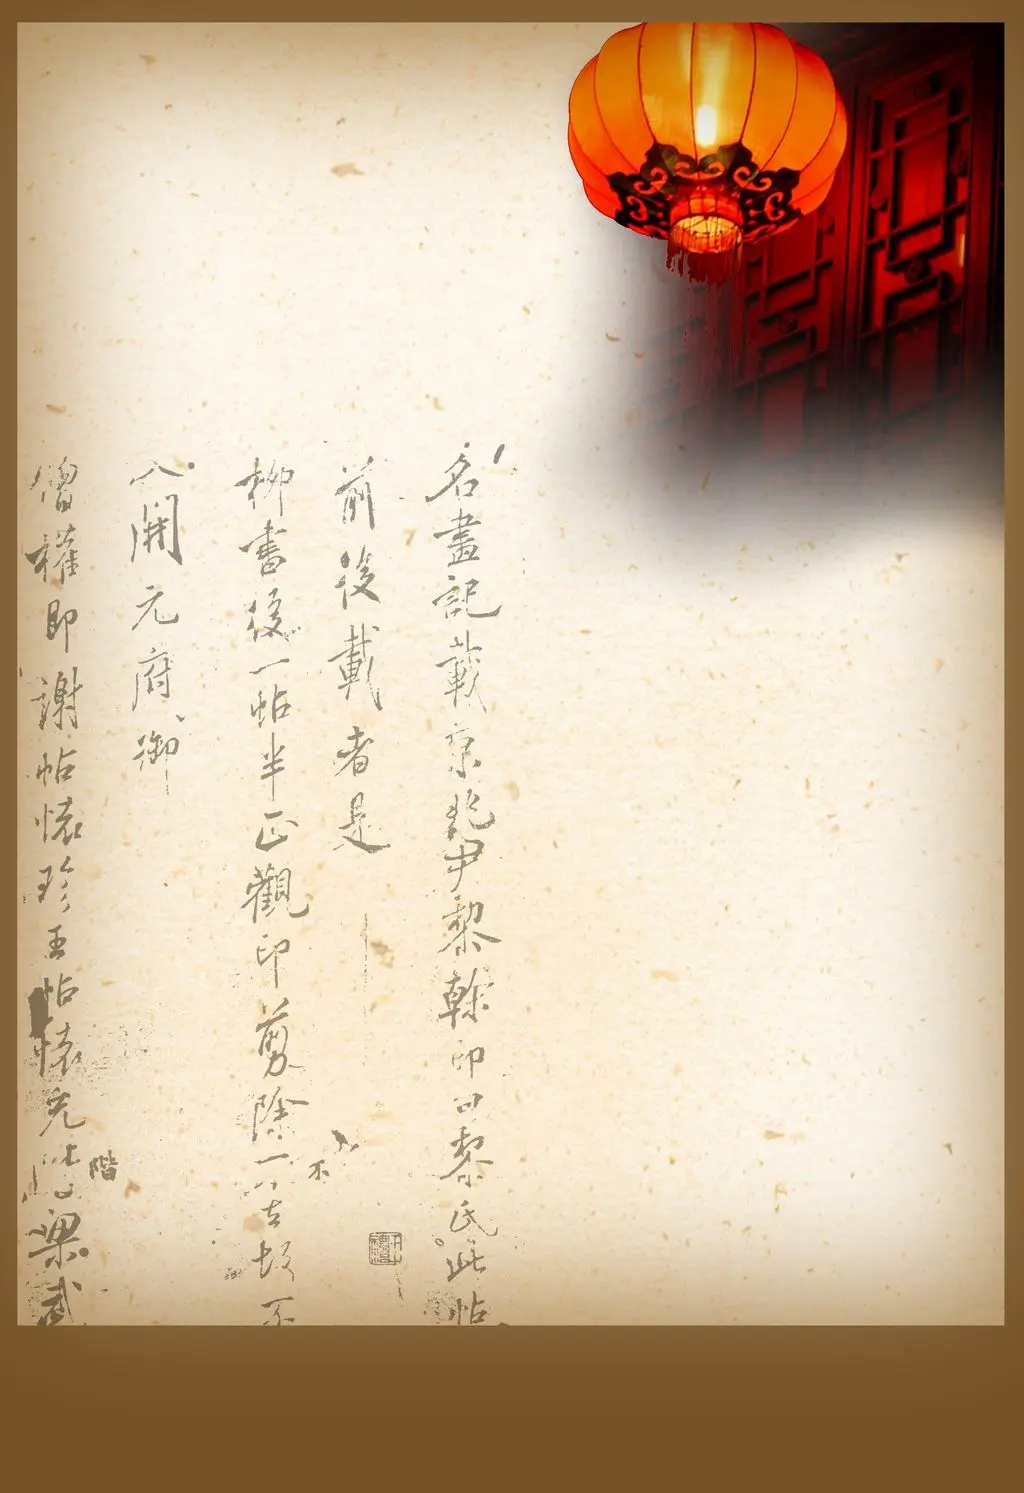 名畫記載京兆尹黎幹印曰黎氏此帖
前後載者是
不
柳書後一帖半正觀印剪除一古故不
八開元府御
階
僧權即謝帖懷珍王帖懷充 梁武